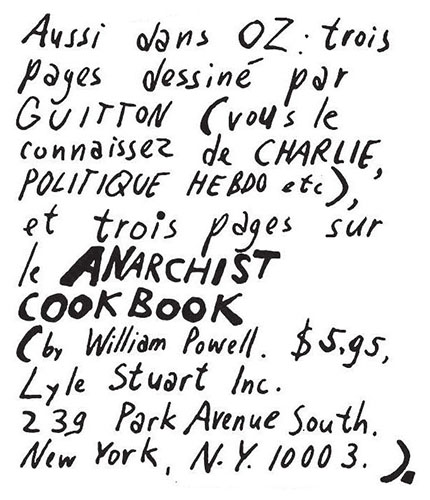 Aussi dans OZ: trois
pages dessiné par
GUITTON (vous le
connaissez de CHARLIE,
POLITIQUE HEBDO etc),
et trois pages sur
le ANARCHIST
COOKBOOK
(by William Powell. $5.95,
Lyle Stuart Inc.
239 Park Avenue South.
New York, N.Y. 10003.).